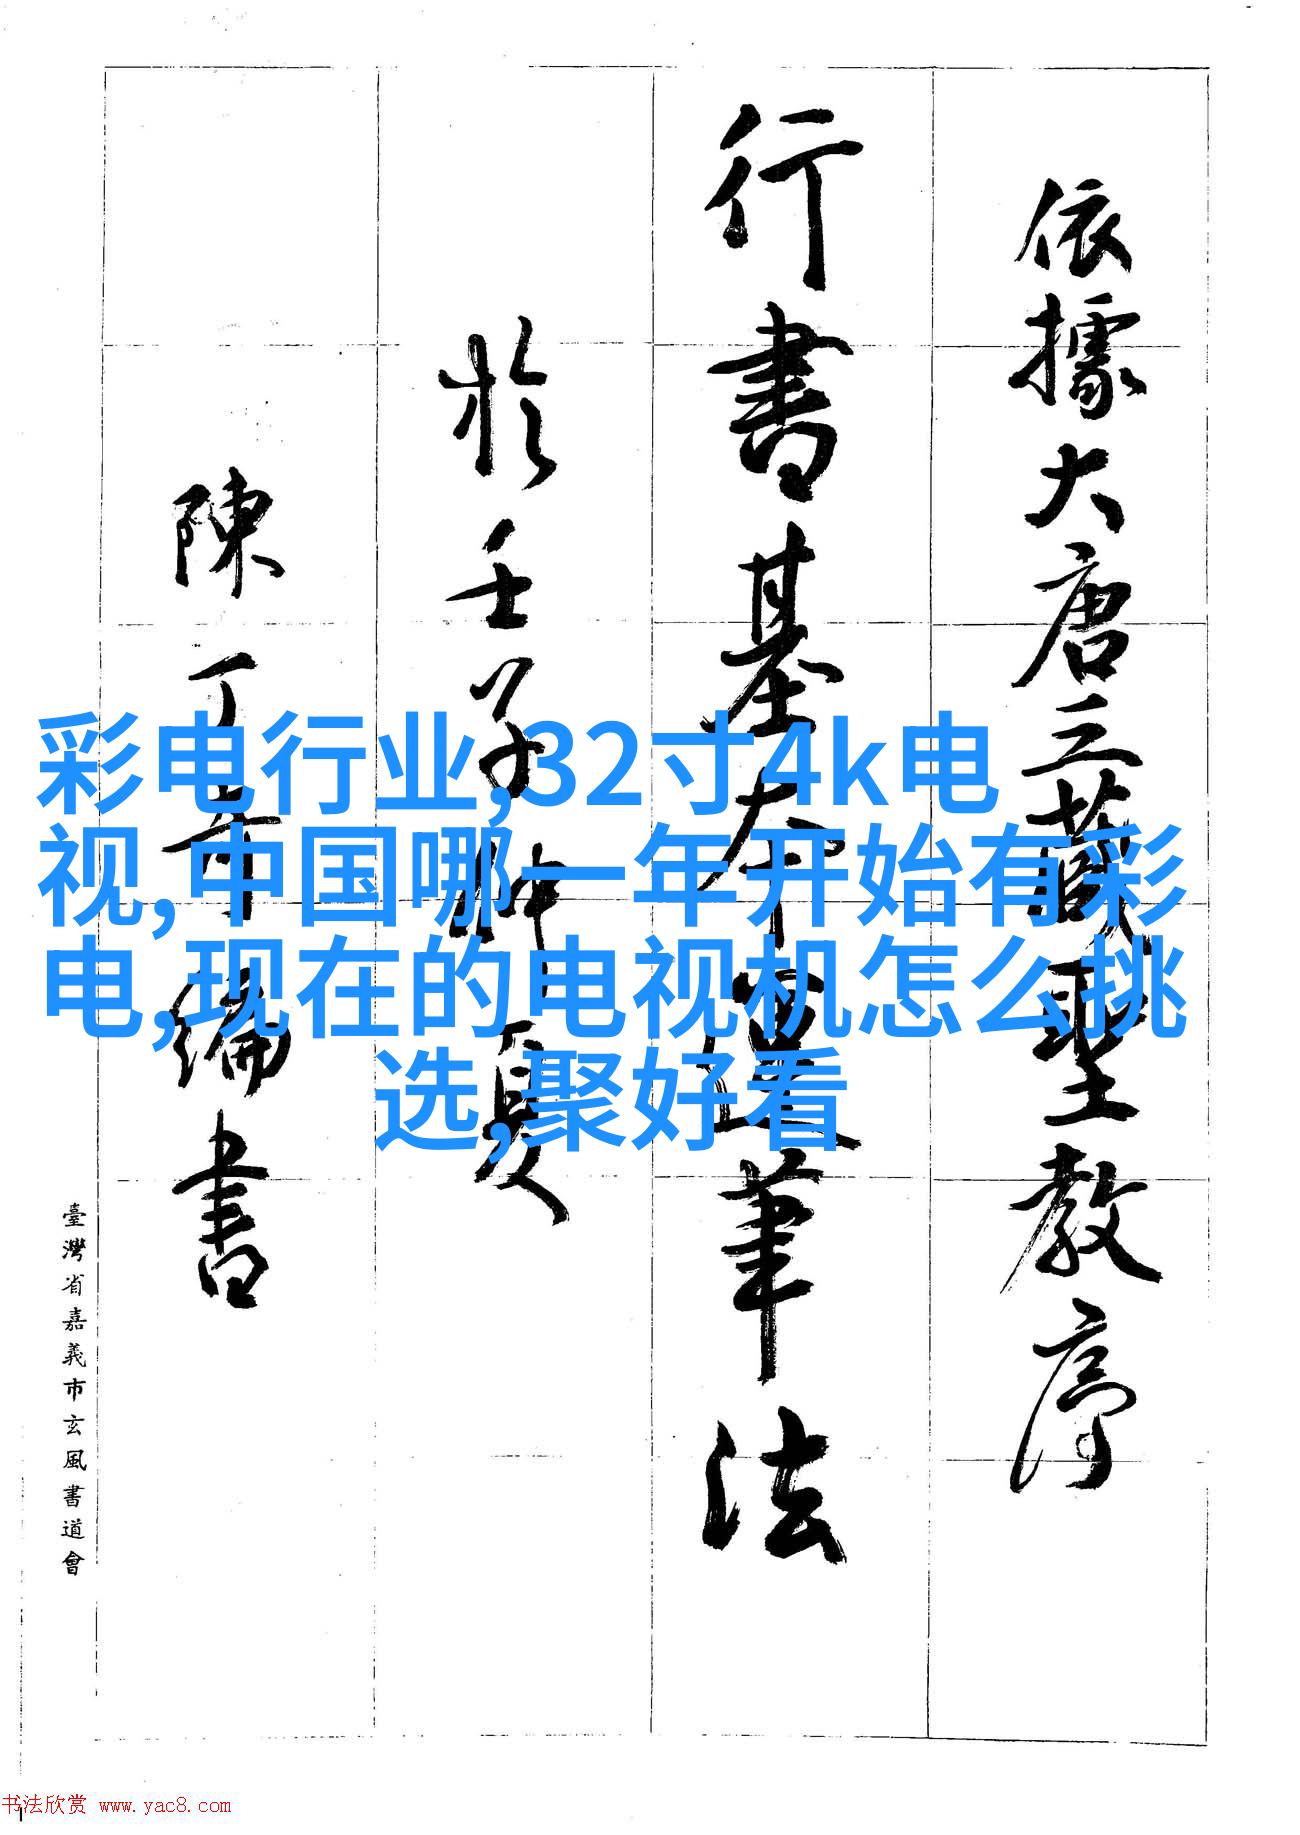 依據大唐三藏聖教序
行書基本運筆法
於壬子仲夏
陳丁奇編書
臺灣省嘉義市玄風書道會
彩电行业,32寸4k电
视,中国哪一年开始有彩
电,现在的电视机怎么挑
选,聚好看
书法欣赏 www.yac8.com